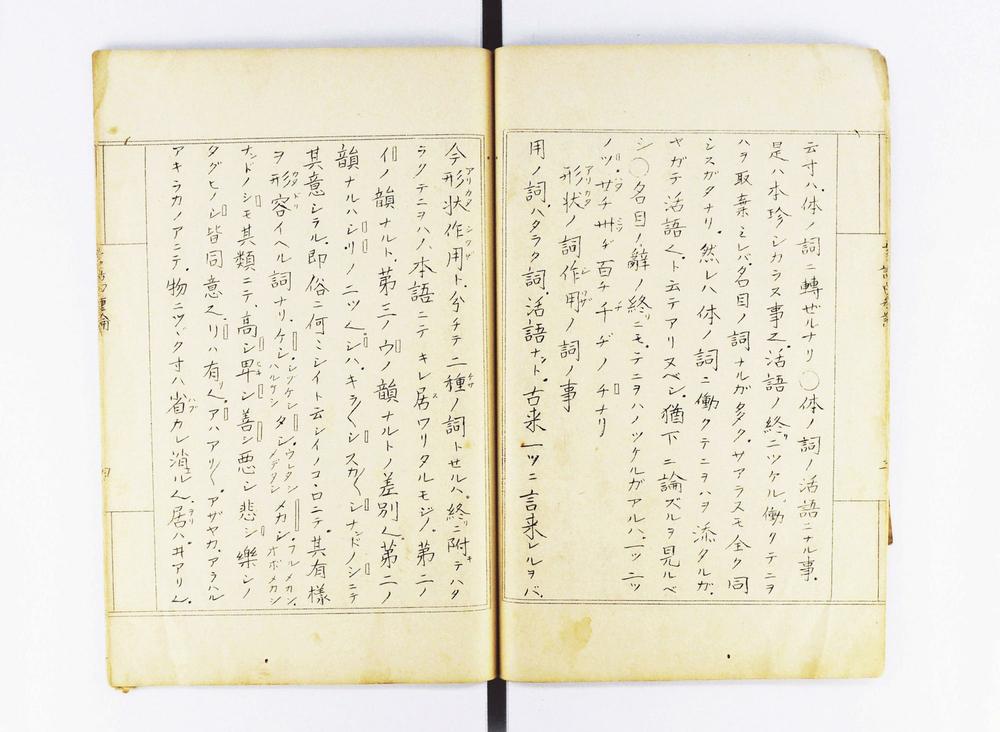 云寸ハ、体ノ詞ニ轉ゼルナリ◯体ノ詞ノ活語ニナル事、
是ハ本珍シカラス事也、活語ノ終ニツケル、働クテニヲ
ハヲ取棄ミレバ、名目ノ詞ナルガ多ク、サアラスモ全ク同
シスガタナリ、然レハ体ノ詞ニ働クテニヲハヲ添タルガ、
ヤガテ活語也、ト云テアリヌベシ、猶下ニ論ズルヲ見ルベ
シ◯名目ノ辭ノ終ニモ、テニヲハノツケルガアルハ、一ツ二ツ
ノツ、サチ卅ヂ百チ千ヂノチナリ
形状ノ詞作用ノ詞ノ事
用ノ詞、ハタラク詞、活語ナント、古来一ツニ言来レルヲバ、
今形状作用ト、分チテ二種ノ詞トセルハ、終ニ附キテハタ
ラクテニヲハノ、本語ニテキレ居ワリタルモジノ、第二ノ
イノ韻ナルト、第三ノウノ韻ナルトノ差別也、第二ノ
韻ナルハシリノ二ツ也、シハ、キラ〱シスガ〱シナンドノシニテ
其意シラル、即俗ニ何〻シイト云シイノコヽロニテ、其有様
ヲ形容イヘル詞ナリ、ケシ、シヅケシハルケシタシ、ウレタシメデタシメカシ、フルメカシオボメカシ
ナンドノシモ其類ニテ、高シ卑シ善シ悪シ悲シ樂シノ
タグヒノシ皆同意也、リハ有リ也、アハアリ〱、アザヤカ、アラハル
アキラカノアニテ、物ニツヾク寸ハ省カレ消ル也、居ハヰアリ也、